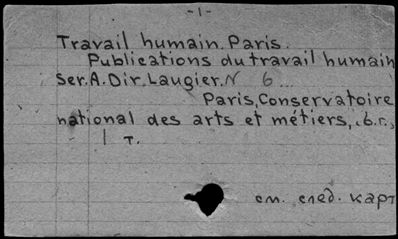 -1-
Travail humain. Paris.
Publications du travail humain
ser. A. Dir. Laugier. N 6...
Paris, Conservatoire
national des arts et métiers, б.г.,
1 т.
см. след. карт